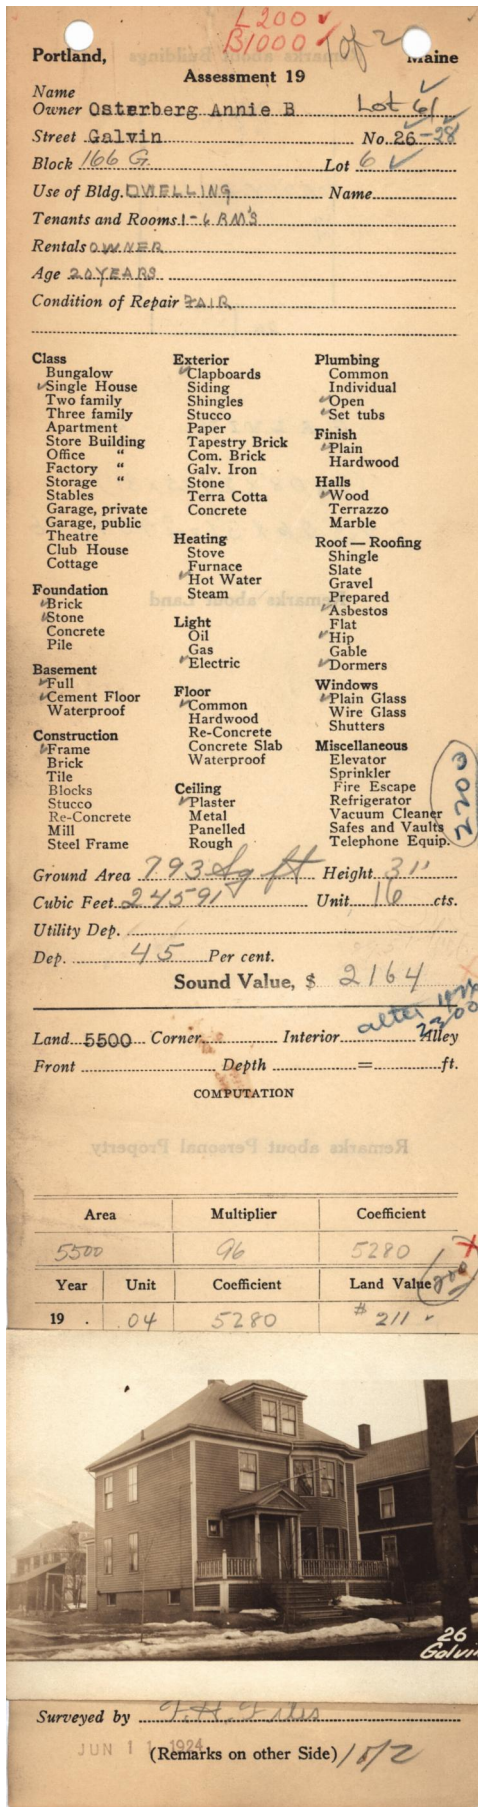 L200 ✓
B1000 ✓ 1 of 2
Portland, Maine
Assessment 19
Name
Owner Osterberg Annie B Lot 61
Street Galvin No. 26-28
Block 166 G Lot 6 ✓
Use of Bldg. DWELLING Name
Tenants and Rooms 1-6 RM'S
Rentals OWNER
Age 20 YEARS
Condition of Repair FAIR
Class
Bungalow
✓ Single House
Two family
Three family
Apartment
Store Building
Office "
Factory "
Storage "
Stables
Garage, private
Garage, public
Theatre
Club House
Cottage
Foundation
✓ Brick
✓ Stone
Concrete
Pile
Basement
✓ Full
✓ Cement Floor
Waterproof
Construction
✓ Frame
Brick
Tile
Blocks
Stucco
Re-Concrete
Mill
Steel Frame
Exterior
✓ Clapboards
Siding
Shingles
Stucco
Paper
Tapestry Brick
Com. Brick
Galv. Iron
Stone
Terra Cotta
Concrete
Heating
Stove
Furnace
✓ Hot Water
Steam
Light
Oil
Gas
✓ Electric
Floor
✓ Common
Hardwood
Re-Concrete
Concrete Slab
Waterproof
Ceiling
✓ Plaster
Metal
Panelled
Rough
Plumbing
Common
Individual
✓ Open
✓ Set tubs
Finish
✓ Plain
Hardwood
Halls
✓ Wood
Terrazzo
Marble
Roof — Roofing
Shingle
Slate
Gravel
Prepared
✓ Asbestos
Flat
✓ Hip
Gable
✓ Dormers
Windows
✓ Plain Glass
Wire Glass
Shutters
Miscellaneous
Elevator
Sprinkler
Fire Escape
Refrigerator
Vacuum Cleaner
Safes and Vaults
Telephone Equip.
2200
Ground Area 793 Sq ft Height 31'
Cubic Feet 24591 Unit 16 cts.
Utility Dep.
Dep. 45 Per cent.
Sound Value, $ 2164
after
2300
Land 5500 Corner Interior Alley
Front Depth = ft.
COMPUTATION
Area Multiplier Coefficient
5500 96 5280
Year Unit Coefficient Land Value 200
19 . .04 5280 $ 211
26
Galvin
Surveyed by
JUN 11 1924
(Remarks on other Side) 1 of 2